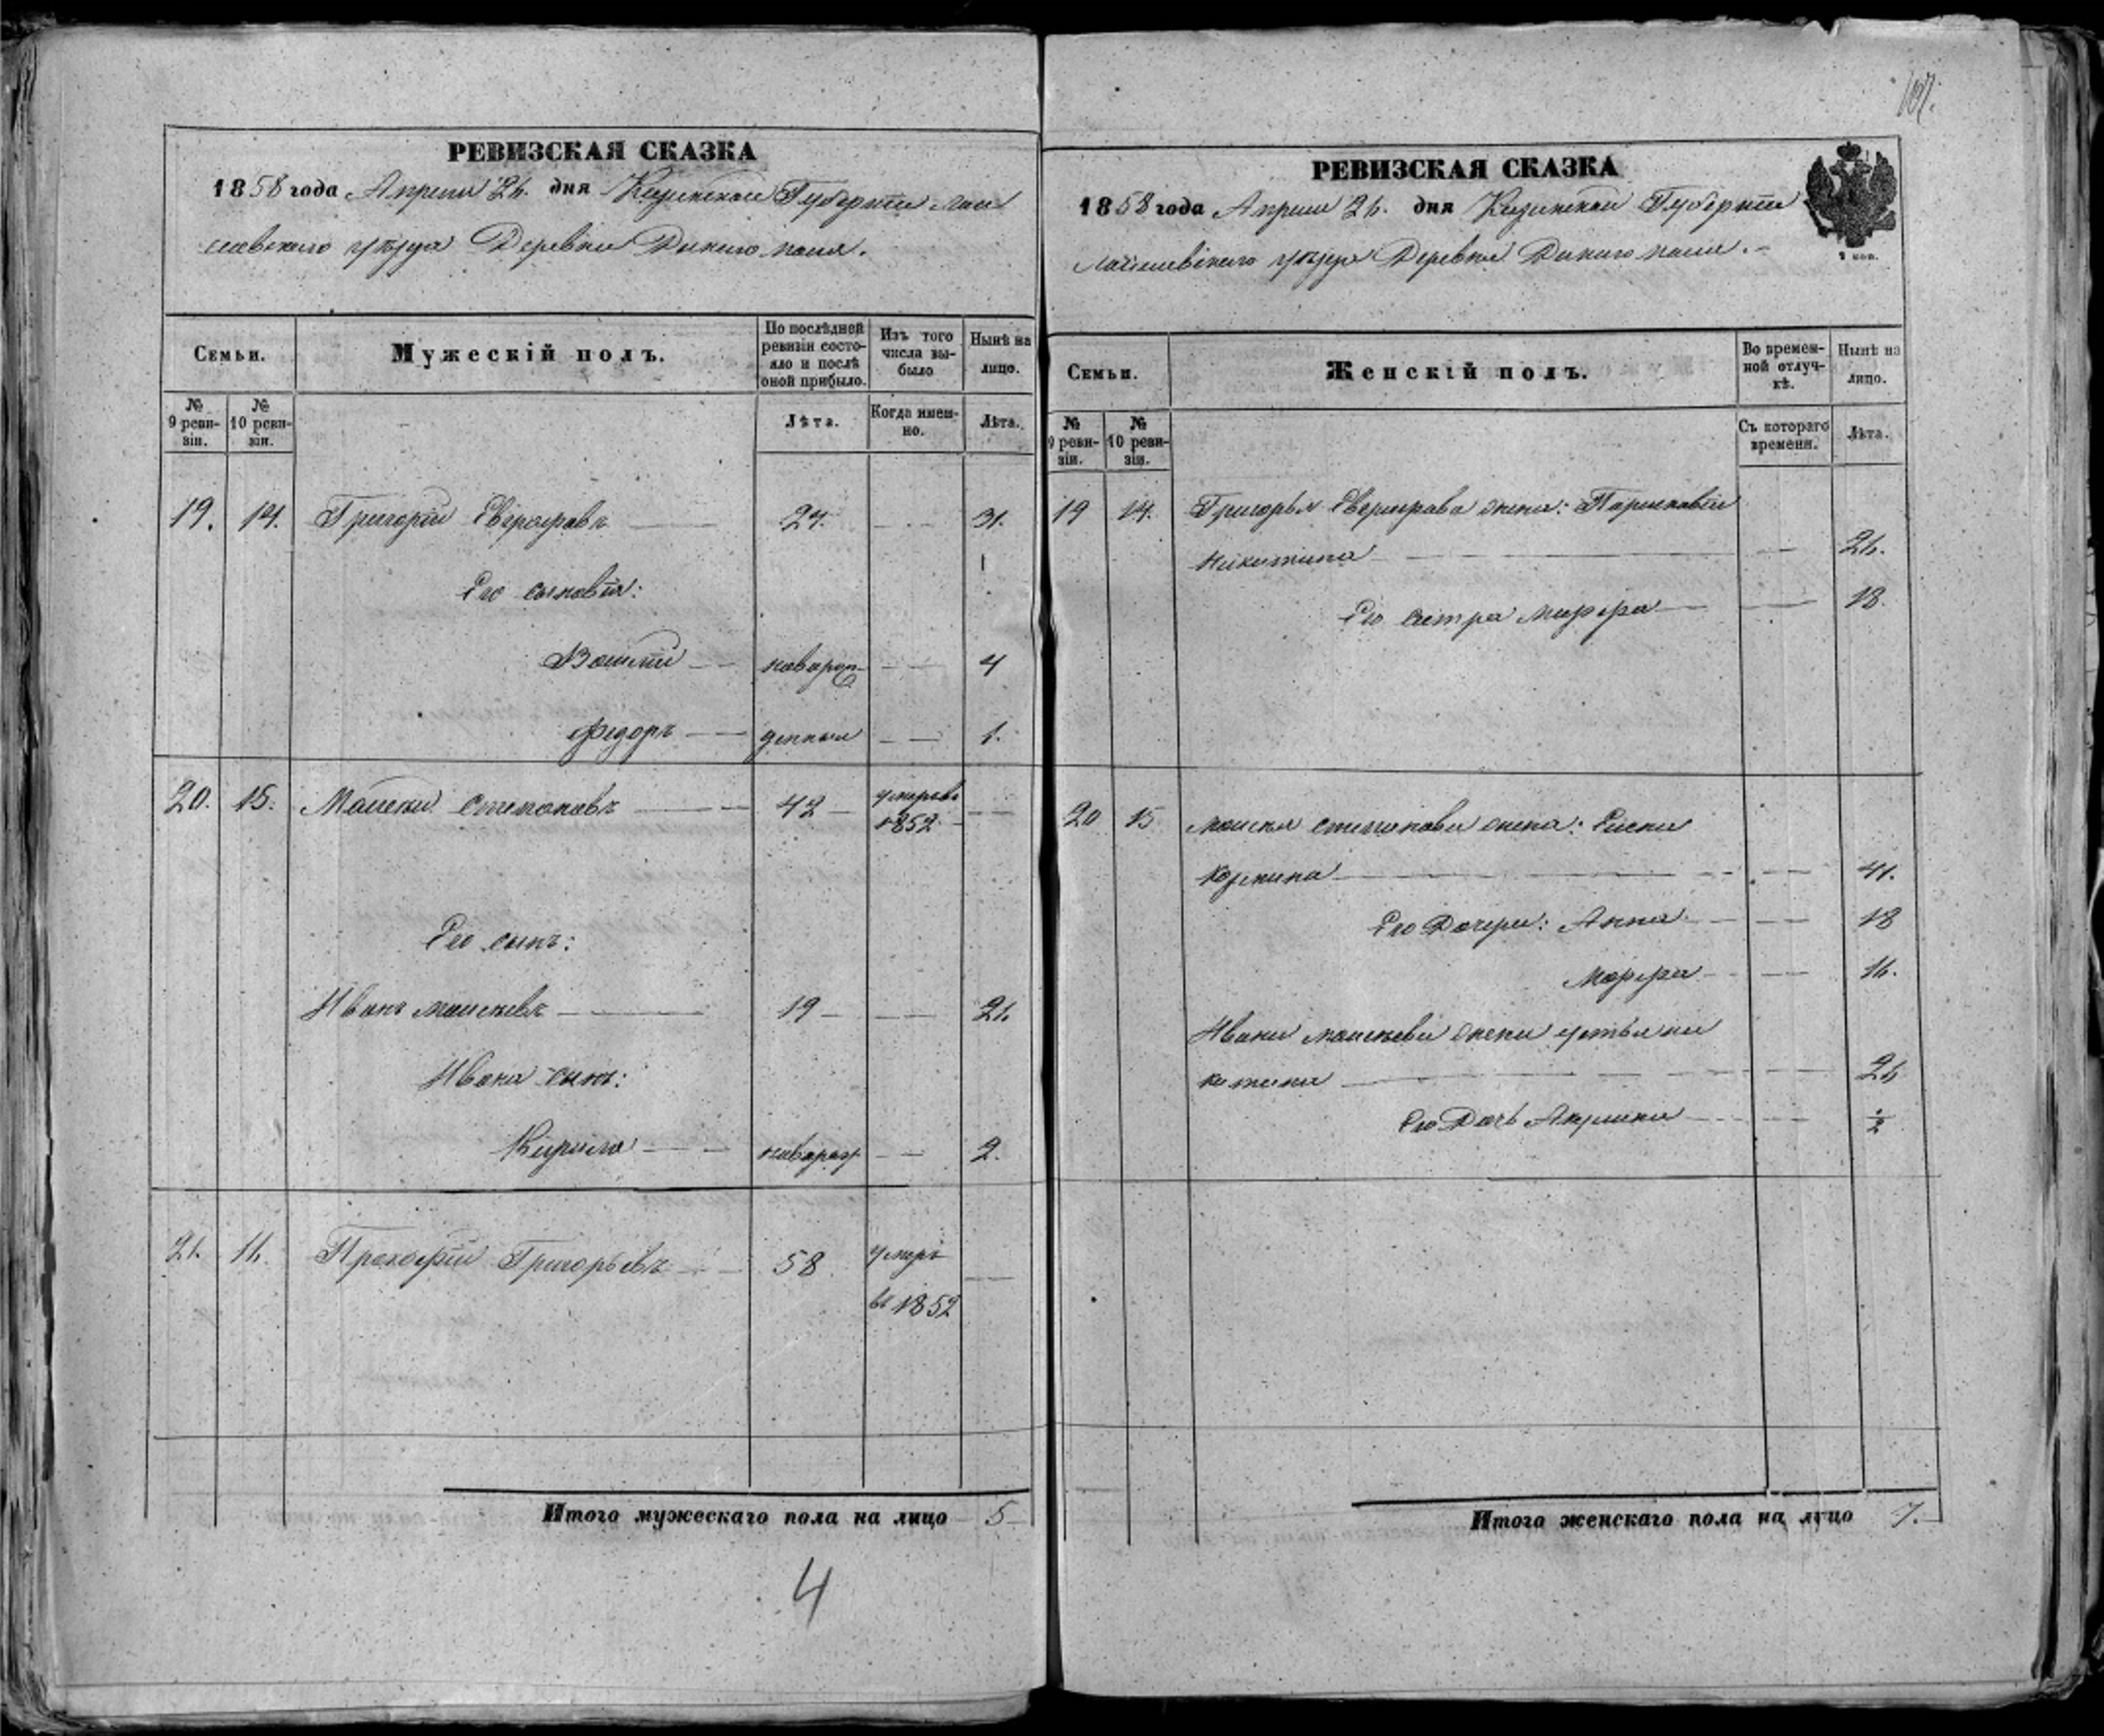 107.
РЕВИЗСКАЯ СКАЗКА
1858 года Апреля 26. дня Казанской Губернiи Лаи
шевскаго уѣзда Деревни Дикаго поля.
Семьи.
Мужескій полъ.
По послѣдней ревизіи состо-
яло и послѣ
оной прибыло.
Изъ того
числа вы-
было
Нынѣ на
лицо.
№
9 реви-
зіи.
№
10 реви-
зіи.
Лѣта.
Когда имен-
но.
Лѣта.
19. 14. Григорій Евграфовъ 24. 31.
Его сыновья:
Василій новорож 4
Федоръ денныя 1.
20. 15. Моисей Степановъ 42 умеръ въ
1852
Его сынъ:
Иванъ Моисеевъ 19 26
Ивана сынъ:
Кирила новорож 2.
21. 16. Прокофій Григорьевъ 58 умеръ
въ 1852
Итого мужескаго пола на лицо 5
4
РЕВИЗСКАЯ СКАЗКА
1858 года Апреля 26. дня Казанской Губернiи
Лаишевскаго уѣзда Деревни Дикаго поля.
Семьи.
Женскій полъ.
Во времен-
ной отлуч-
кѣ.
Нынѣ на
лицо.
№
9 реви-
зіи.
№
10 реви-
зіи.
Съ котораго
времени.
Лѣта.
19 14. Григорья Евграфова жена: Парасковія
Никитина 26.
Его сестра Марфа 18.
20 15 Моисея Степанова жена:
Козмина 41.
Его Дочери: Анна 18
Марфа 16.
Ивана Моисеева жена Устья Ни
китина 26
Его Дочь Акулина ½
Итого женскаго пола на лицо 7.